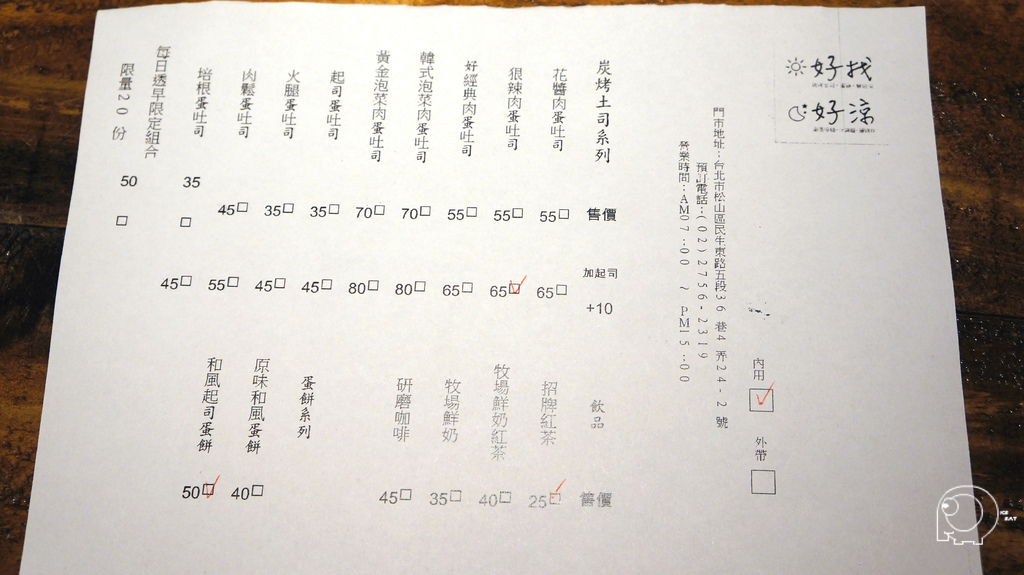 好找
好涼
門市地址：台北市松山區民生東路五段36巷4弄24-2號
預訂電話：(02)2756-2319
營業時間：AM07:00 ~ PM15:00
內用 □
外帶 □
炭烤土司系列 售價 加起司 +10
花醬肉蛋吐司 55□ 65□
狠辣肉蛋吐司 55□ 65□
好經典肉蛋吐司 55□ 65□
韓式泡菜肉蛋吐司 70□ 80□
黃金泡菜肉蛋吐司 70□ 80□
起司蛋吐司 35□ 45□
火腿蛋吐司 35□ 45□
肉鬆蛋吐司 45□ 55□
培根蛋吐司 35□ 45□
每日透早限定組合
限量20份 50□
飲品 售價
招牌紅茶 25□
牧場鮮奶紅茶 40□
牧場鮮奶 35□
研磨咖啡 45□
蛋餅系列
原味和風蛋餅 40□
和風起司蛋餅 50□
ICE
EAT